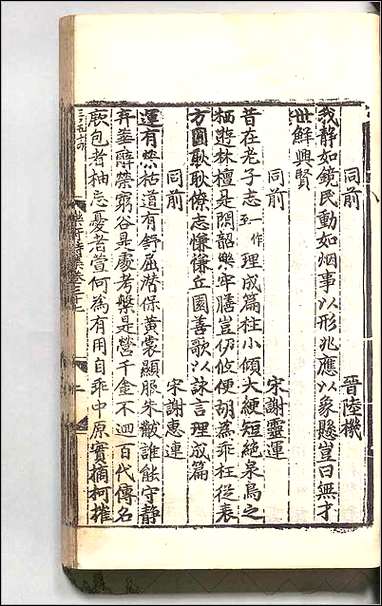 同前 晉陸機
我静如鏡民動如烟事以形兆應以象懸豈曰無才
世鮮興賢
同前 宋謝靈運
昔在老子志一作至理成篇柱小傾大綆短絶泉鳥之
栖遊林檀是閑韶樂牢膳豈伊攸便胡爲乖枉從表
方圓耿耿僚志慊慊丘園善歌以詠言理成篇
同前 宋謝惠連
運有榮枯道有舒屈潜保黄裳顯服朱黻誰能守静
弃華辭榮窮谷是處考槃是營千金不迴百代傳名
厥包者柚忘憂者萱何爲有用自乖中原實摘柯摧